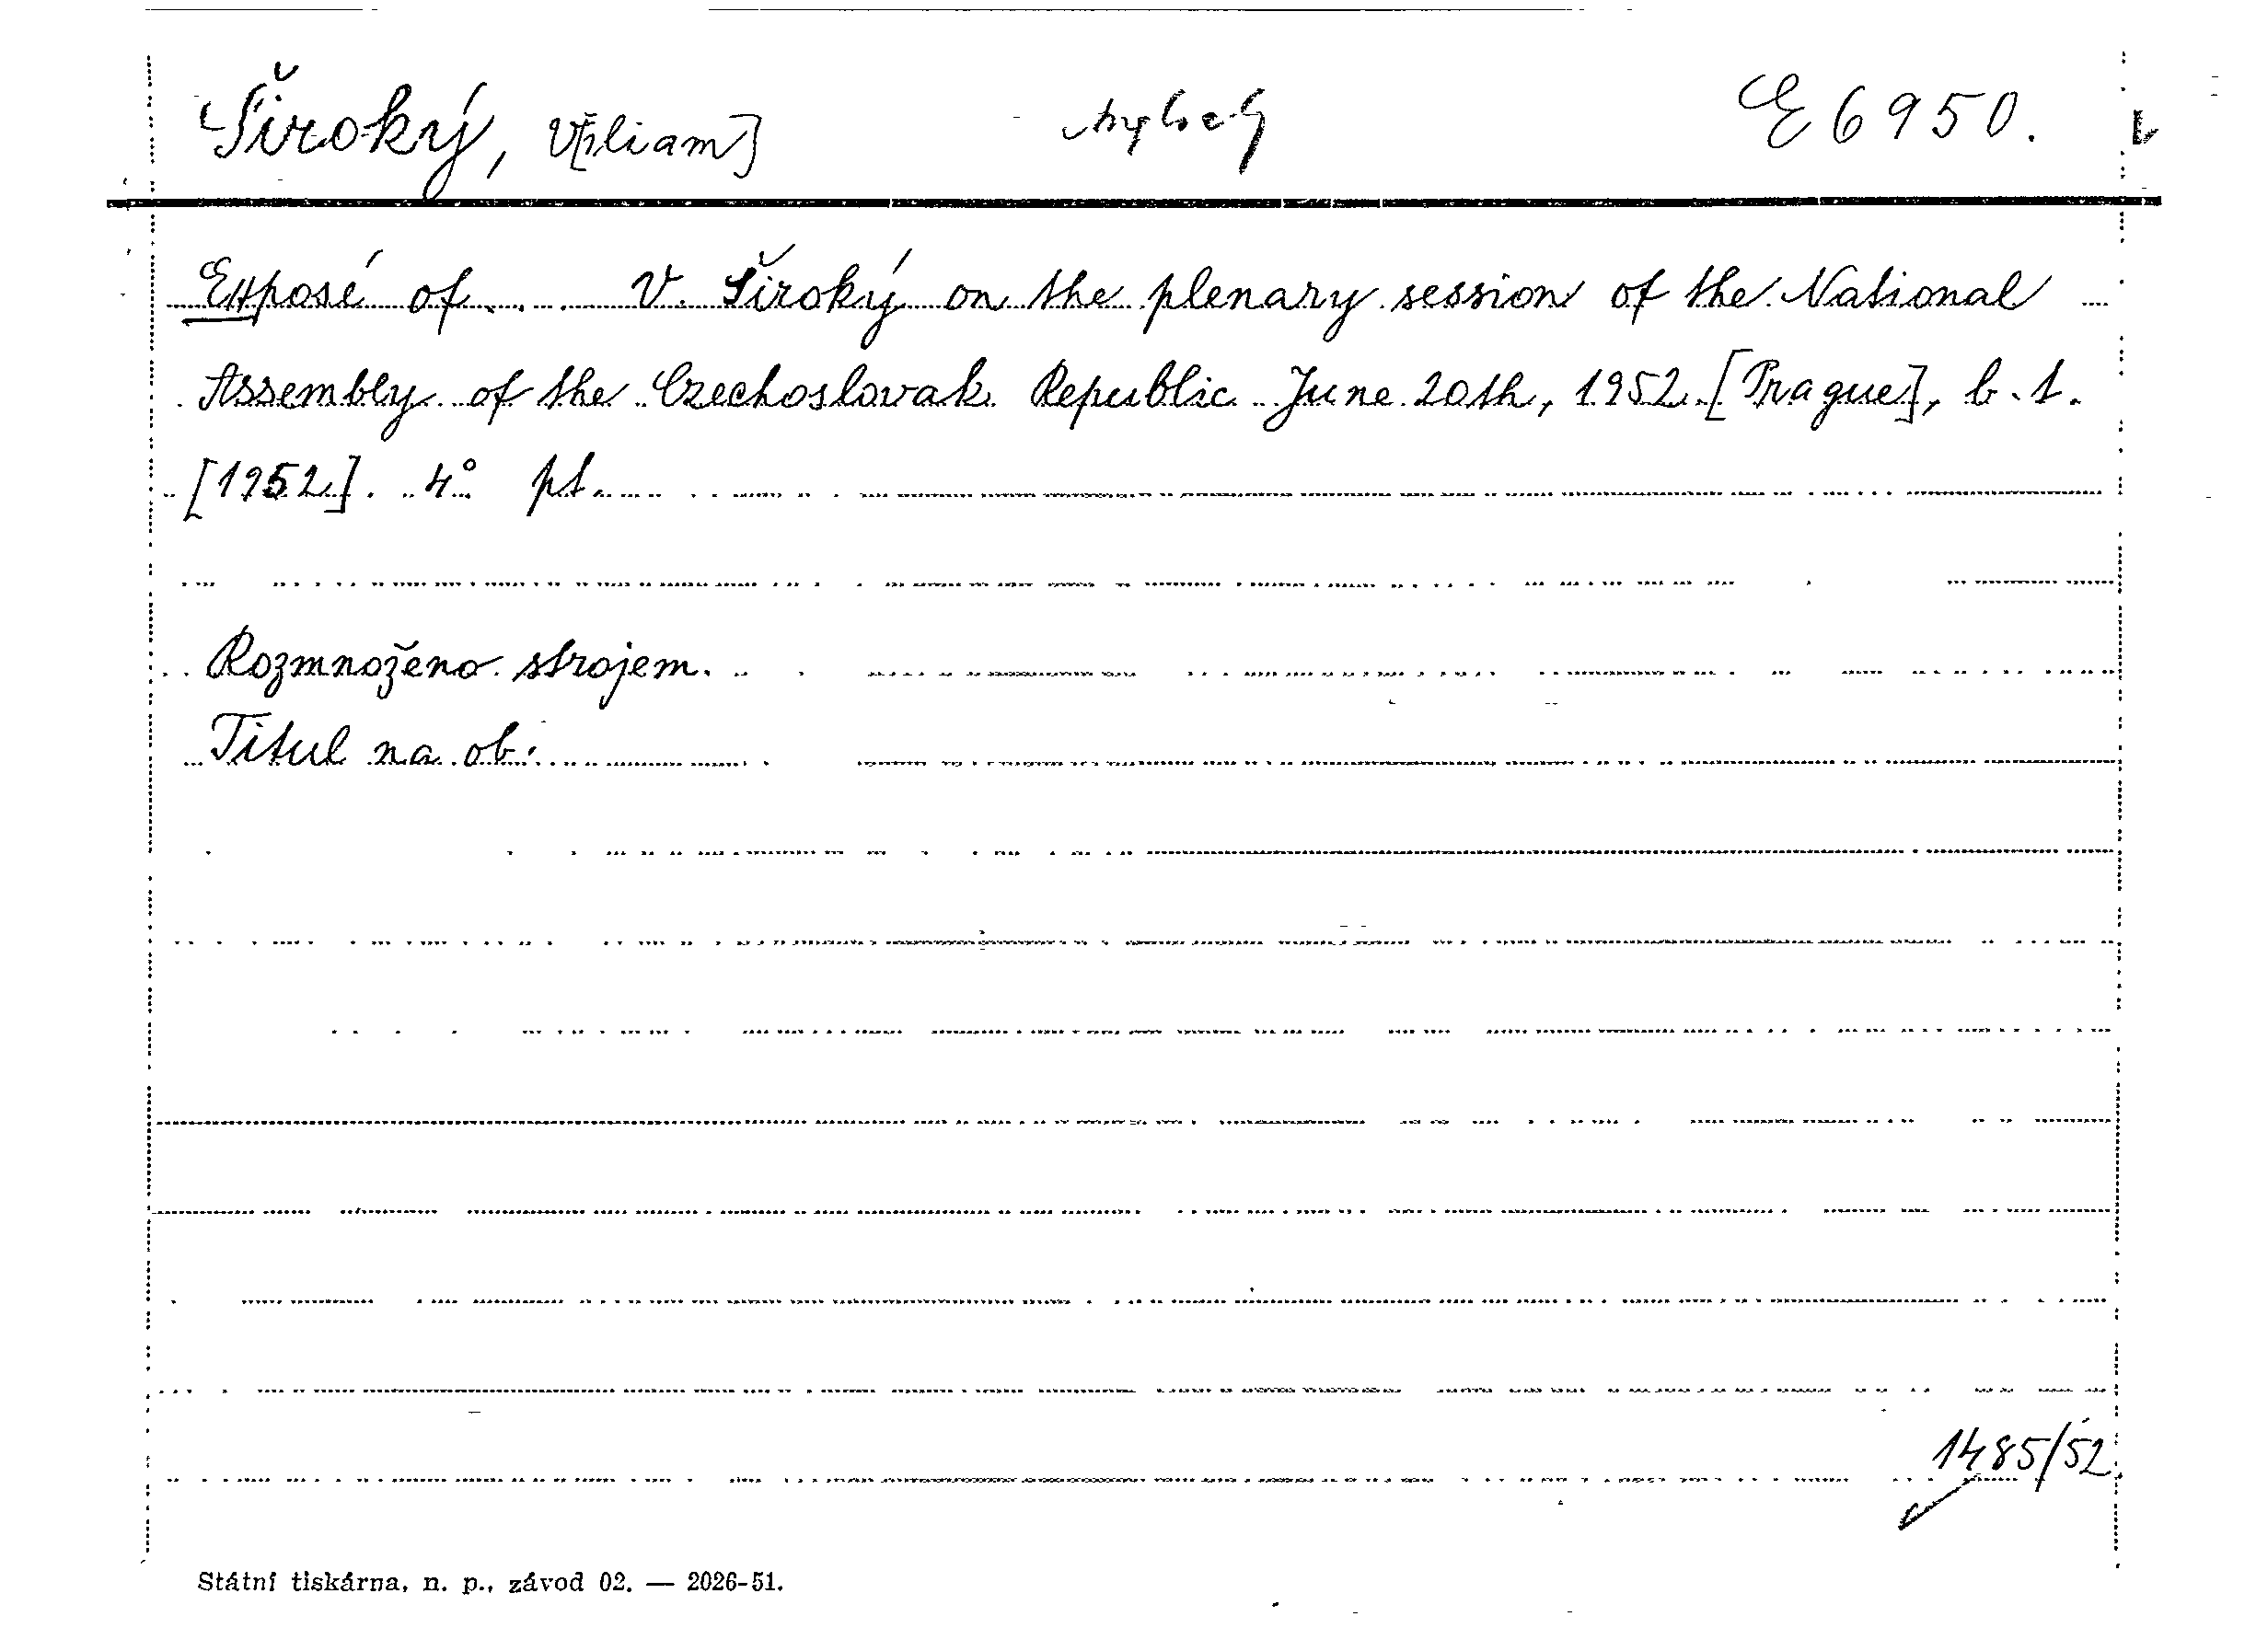 Široký, V[iliam] E 6950.
Exposé of . . . V. Široký on the plenary session of the National
Assembly of the Czechoslovak Republic June 20th, 1952. [Prague], b. t.
[1952]. 4° pt.
Rozmnoženo strojem.
Titul na ob.
1485/52
Státní tiskárna, n. p., závod 02. — 2026-51.